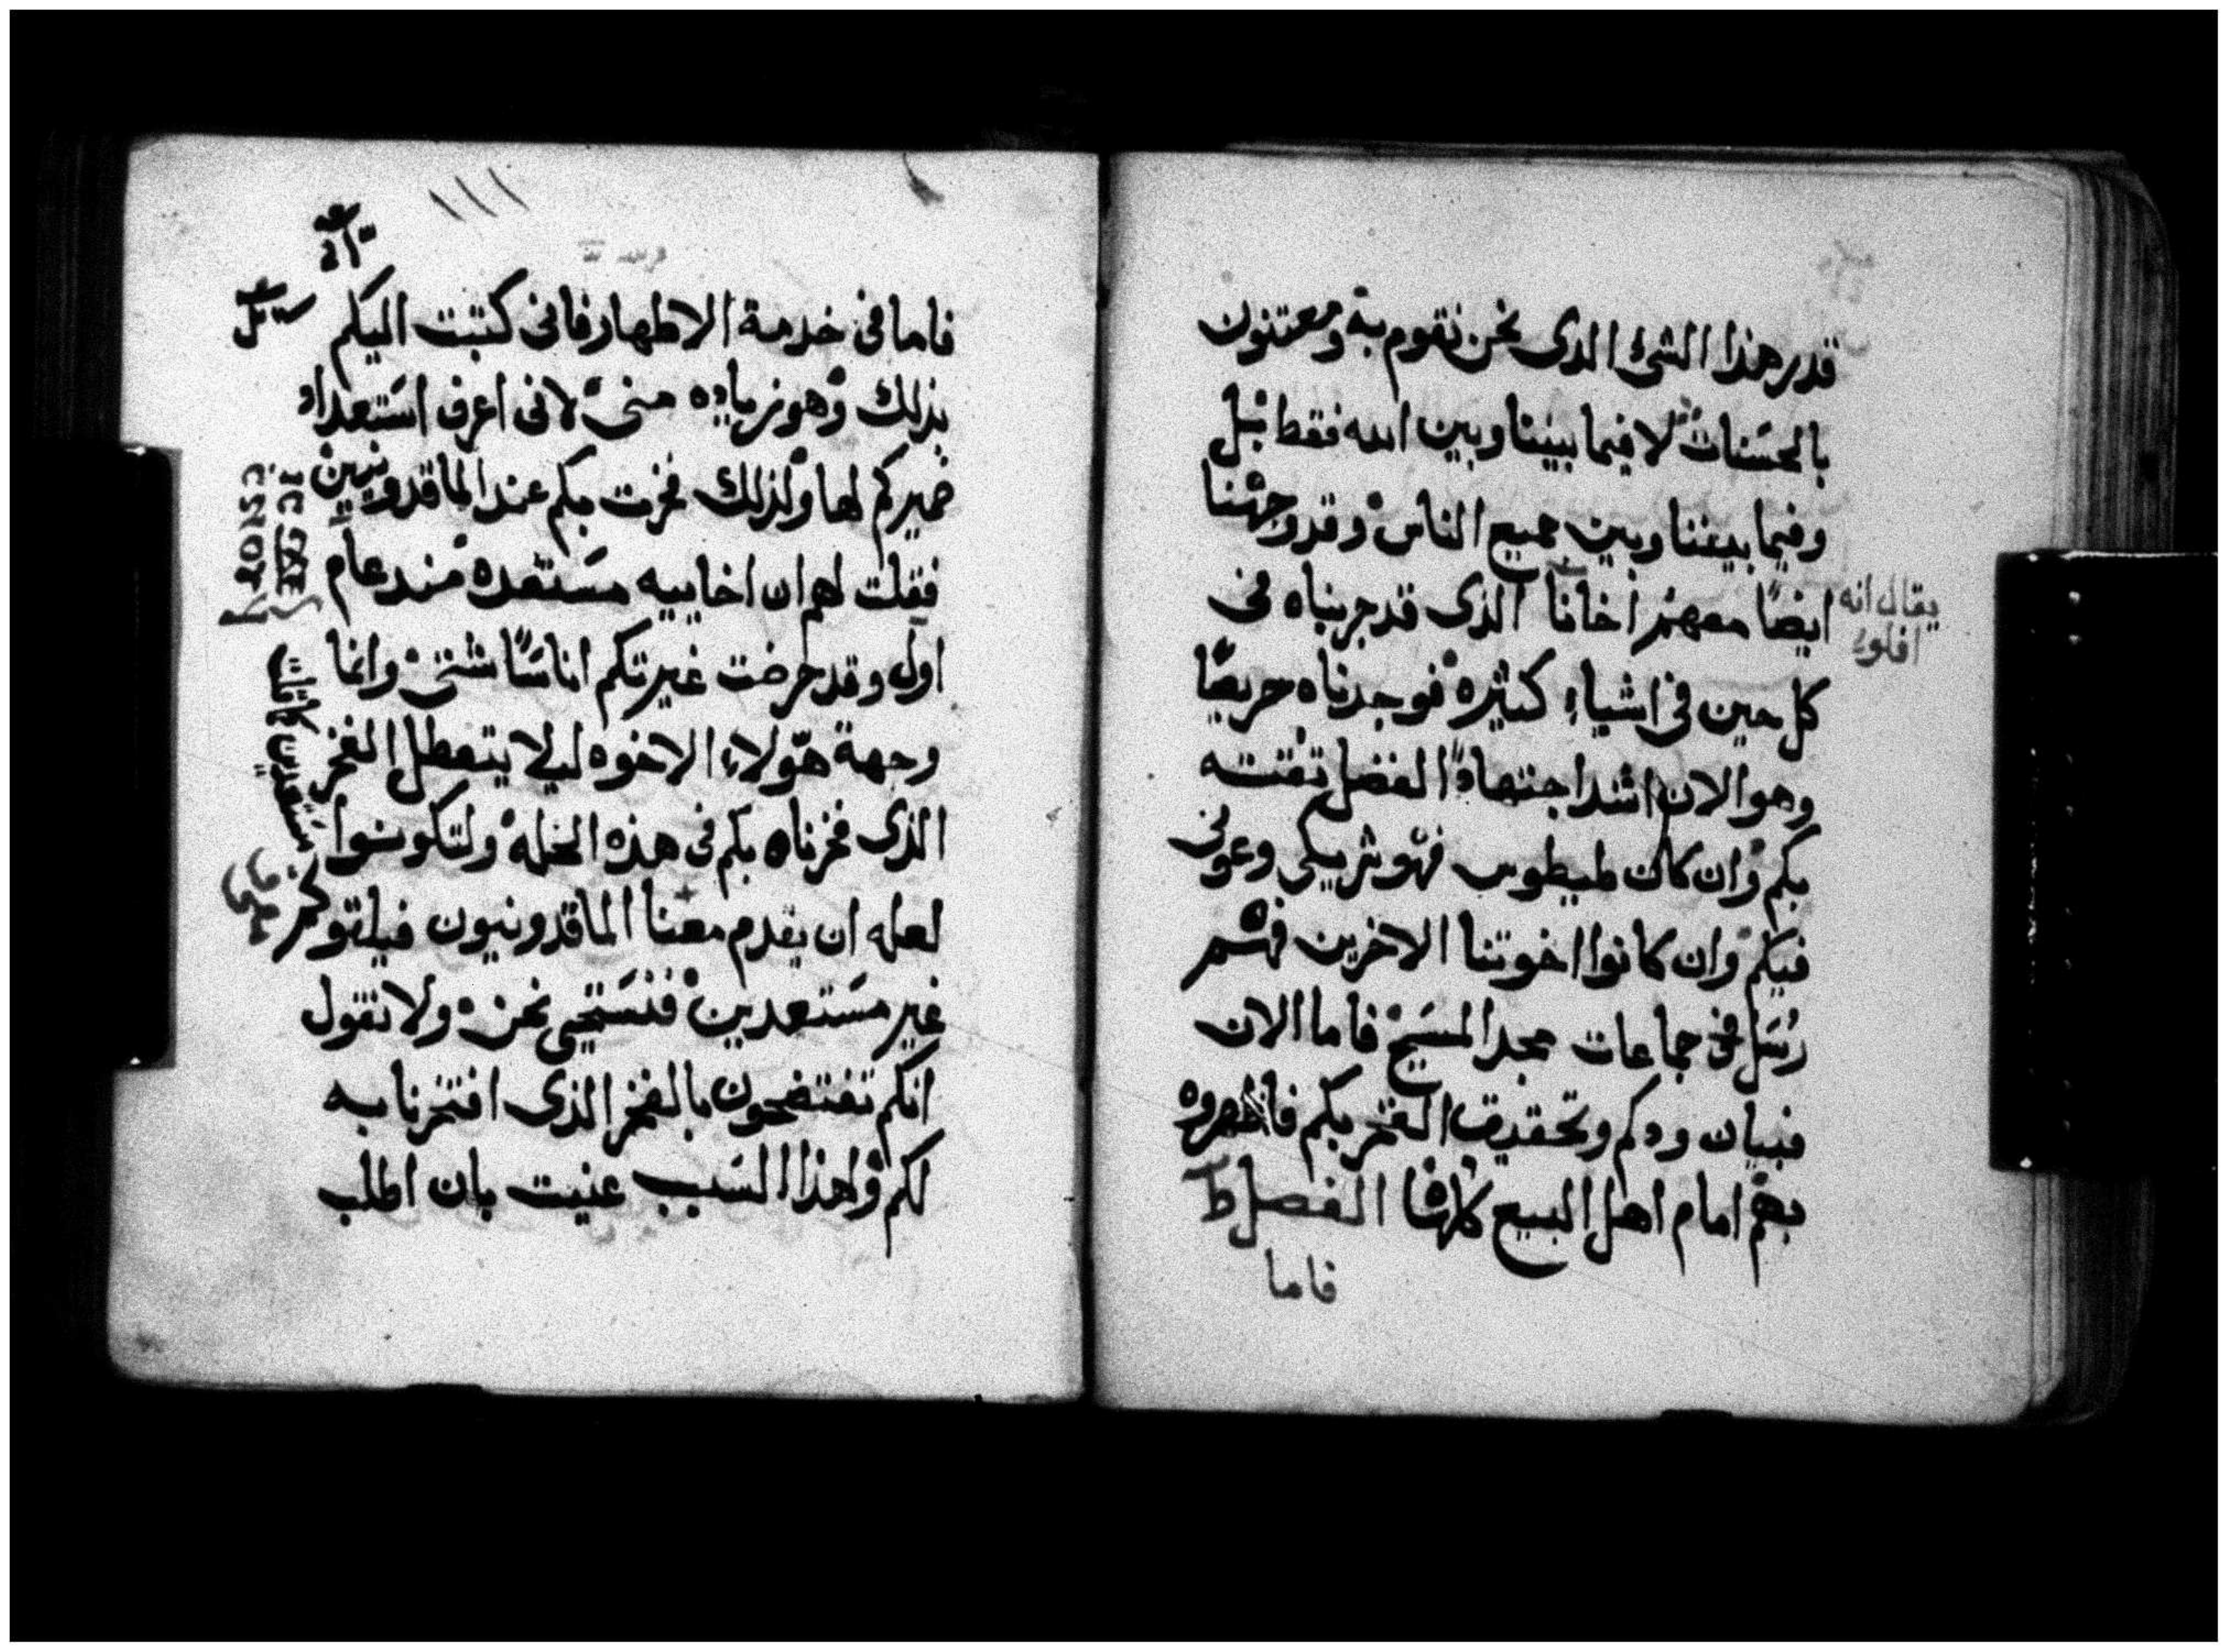 قدر هذا الشئ الدى نحن نقوم به ومعتنون
بالحسنات لا فيما بيننا وبين الله فقط بل
وفيما بيننا وبين جميع الناس وقد وجهنا
ايضًا معهم اخانا الذى قد جربناه فى
يقال انه
افلوا
كل حين فى اشياء كثيره فوجدناه حريصًا
وهو الان اشد اجتهادًا لفضل تقته
بكم وان كان طيطوس فهو شريكى وعونى
فيكم وان كانوا اخوتنا الاخرين فهم
رسل فى جماعات مجد المسيح فاما الان
فبيان ودكم وتحقيق الفخر بكم فاظهروه
بهم امام اهل البيع كلها الفصل ط
فاما
فاما فى خدمة الاطهار فانى كتبت اليكم
بذلك وهو زياده منى لانى اعرف استعداد
ضميركم لها ولذلك فخرت بكم عند الماقدونيين
فقلت لهم ان اخاييه مستعده مند عام
اول وقد حرضت غيرتكم اناسًا شتى وانما
وجهة هولاء الاخوه ليلا يتعطل الفخر
الذى فخرناه بكم فى هذه الخله ولتكونوا
مستعدين كما قلت
لعله ان يقدم معنا الماقدونيون فيلقوكم
غير مستعدين فنستحيى نحن ولا نقول
انكم تفتضحون بالفخر الذى افتخرنا به
لكم ولهذا السبب عنيت بان اطلب